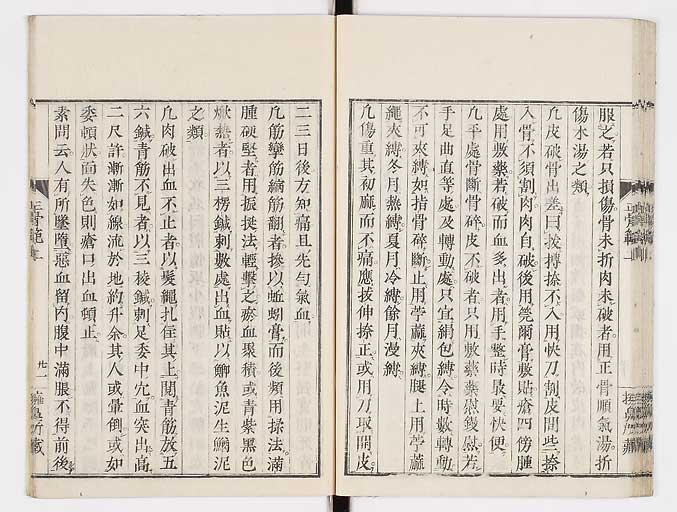 服之若只損傷骨未折肉未破者用正骨順氣湯折
傷木湯之類
凡皮破骨出差臼拔搏捺不入用快刀割皮間些捺
入骨不須割肉肉自破後用
膏敷貼瘡四傍腫
處用敷藥若破而血多出者用手整時最要快便
凡平處骨斷骨碎皮不破者只用敷藥藥慰
手足曲直等處及轉動處只宜絹包縛令時數轉動
不可夾縛如指骨碎斷止用苧蔴夾縛腿上用苧蔴
繩夾縛冬月熱縛夏月冷縛餘月漫縛
凡傷重其初麻而不痛應拔伸捺正或用刀取開皮
二三日後方知痛且先勻氣血
凡筋攣筋縮筋翻者摻以蚯蚓膏而後頻用揉法滿
腫破堅者用振挺法輕擊之瘀血聚積或青紫黑色
焮熱者以三稜鍼刺數處出血貼以鯽魚泥生鰌泥
之類
凡肉破出血不止者以髮繩扎住其上閱青筋放五
六鍼青筋不見者以三稜鍼刺足委中穴血突出高
二尺許漸漸如線流於地約升余其人或暈倒或如
委頓狀面失色則瘡口出血頓止
素問云人有所墜墮惡血留內腹中滿脹不得前後
正骨範
廿一